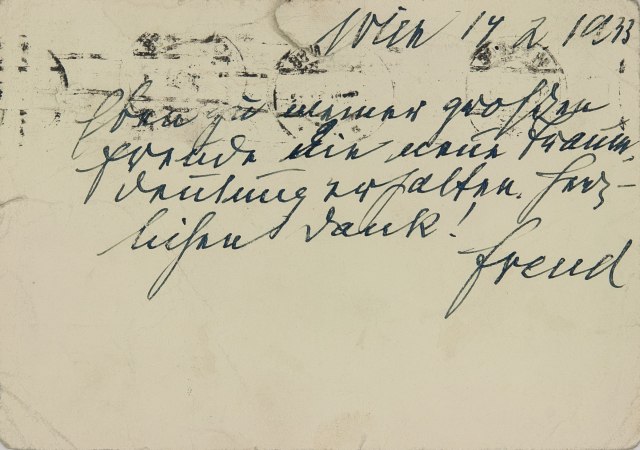 Wien 14 2 1933
Eben zu meiner großen
Freude die neue Traum-
deutung erhalten. Herz-
lichen Dank!
Freud